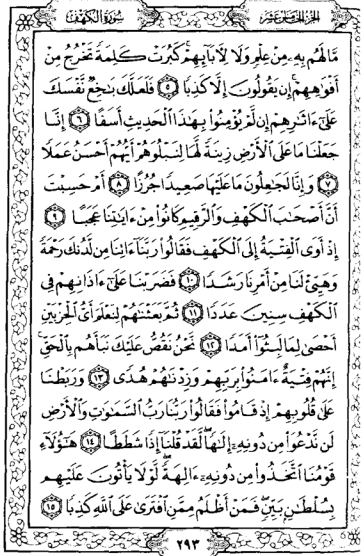 سورة الكهف
الجزء الخامس عشر
مَّا لَهُم بِهِۦ مِنْ عِلْمٍ وَلَا لِأَبَآئِهِمْ كَبُرَتْ كَلِمَةً تَخْرُجُ مِنْ
أَفْوَٰهِهِمْ إِن يَقُولُونَ إِلَّا كَذِبًا ٥ فَلَعَلَّكَ بَٰخِعٌ نَّفْسَكَ
عَلَىٰٓ ءَاثَٰرِهِمْ إِن لَّمْ يُؤْمِنُوا۟ بِهَٰذَا ٱلْحَدِيثِ أَسَفًا ٦ إِنَّا
جَعَلْنَا مَا عَلَى ٱلْأَرْضِ زِينَةً لَّهَا لِنَبْلُوَهُمْ أَيُّهُمْ أَحْسَنُ عَمَلًا
٧ وَإِنَّا لَجَٰعِلُونَ مَا عَلَيْهَا صَعِيدًا جُرُزًا ٨ أَمْ حَسِبْتَ
أَنَّ أَصْحَٰبَ ٱلْكَهْفِ وَٱلرَّقِيمِ كَانُوا۟ مِنْ ءَايَٰتِنَا عَجَبًا ٩
إِذْ أَوَى ٱلْفِتْيَةُ إِلَى ٱلْكَهْفِ فَقَالُوا۟ رَبَّنَآ ءَاتِنَا مِن لَّدُنكَ رَحْمَةً
وَهَيِّئْ لَنَا مِنْ أَمْرِنَا رَشَدًا ١٠ فَضَرَبْنَا عَلَىٰٓ ءَاذَانِهِمْ فِى
ٱلْكَهْفِ سِنِينَ عَدَدًا ١١ ثُمَّ بَعَثْنَٰهُمْ لِنَعْلَمَ أَىُّ ٱلْحِزْبَيْنِ
أَحْصَىٰ لِمَا لَبِثُوٓا۟ أَمَدًا ١٢ نَّحْنُ نَقُصُّ عَلَيْكَ نَبَأَهُم بِٱلْحَقِّ
إِنَّهُمْ فِتْيَةٌ ءَامَنُوا۟ بِرَبِّهِمْ وَزِدْنَٰهُمْ هُدًى ١٣ وَرَبَطْنَا
عَلَىٰ قُلُوبِهِمْ إِذْ قَامُوا۟ فَقَالُوا۟ رَبُّنَا رَبُّ ٱلسَّمَٰوَٰتِ وَٱلْأَرْضِ
لَن نَّدْعُوَا۟ مِن دُونِهِۦٓ إِلَٰهًا لَّقَدْ قُلْنَآ إِذًا شَطَطًا ١٤ هَٰٓؤُلَآءِ
قَوْمُنَا ٱتَّخَذُوا۟ مِن دُونِهِۦٓ ءَالِهَةً لَّوْلَا يَأْتُونَ عَلَيْهِم
بِسُلْطَٰنٍۭ بَيِّنٍ فَمَنْ أَظْلَمُ مِمَّنِ ٱفْتَرَىٰ عَلَى ٱللَّهِ كَذِبًا ١٥
٢٩٣